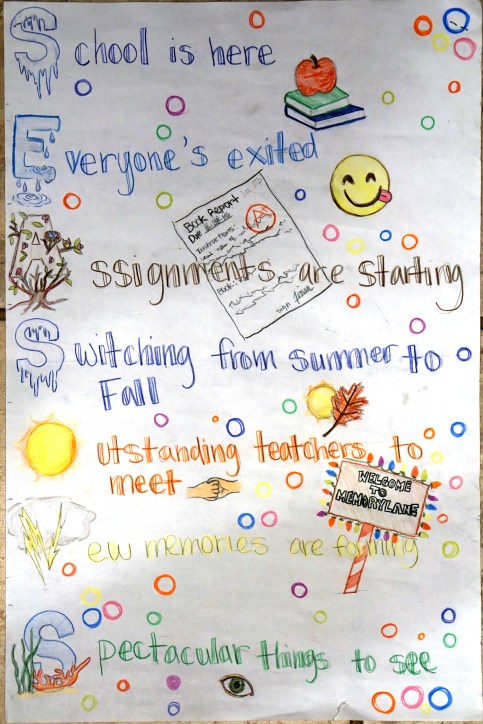 School is here
Everyone's exited
Book Report
Due
Instructions:
Book:
Sign
Assignments are starting
Switching from summer to
Fall
Outstanding teatchers to
meet
WELCOME
TO
MEMORYLANE
New memories are forming
Spectacular things to see